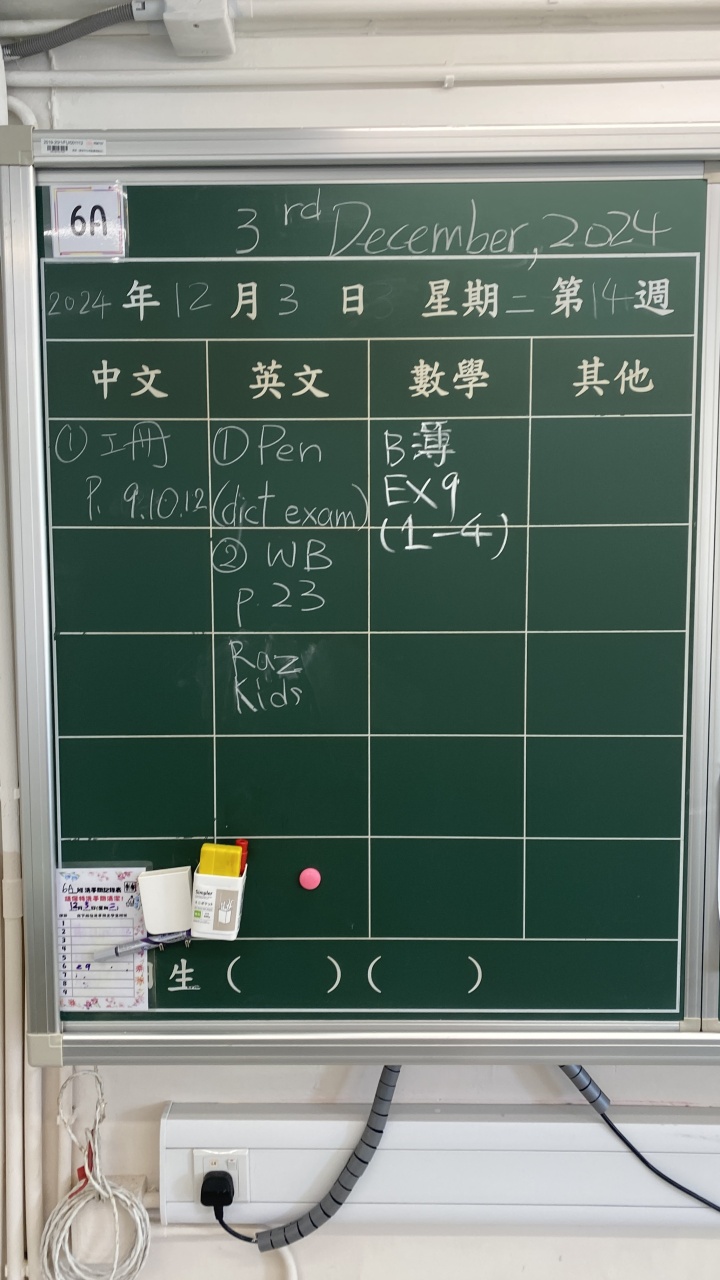 6A
3rd December, 2024
2024 年 12 月 3 日 星期 二 第 14 週
中文 英文 數學 其他
① 工冊
P. 9.10.12
① Pen
(dict exam)
② WB
p.23
Raz
Kids
B薄
EX9
(1-4)
6A
1
2
3
4
5
6
7
8
9
生 ( ) ( )